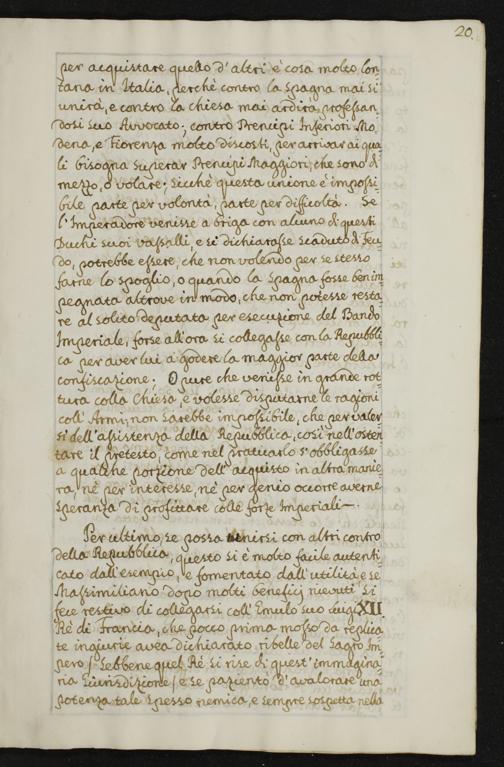 20.
per acquistare quello d'altri è cosa molto lon-
tana in Italia, perchè contro la Spagna mai si
unirà, e contro la chiesa mai ardirà, professan-
dosi suo Avvocato; contro Prencipi Inferiori Mo-
dena, e Fiorenza molto discosti, per arrivar ai qua-
li bisogna superar Prencipi Maggiori, che sono di
mezzo, o volare; Sicchè questa unione è impossi-
bile parte per volontà, parte per difficoltà. Se
l'Imperadore venisse a briga con alcuno di questi
Duchi suoi vassalli, e si dichiarasse scaduto di Feu-
do, potrebbe essere, che non volendo per se stesso
farne lo spoglio, o quando la Spagna fosse ben im-
pegnata altrove in modo, che non potesse resta-
re al solito deputata per esecuzione del Bando
Imperiale, forse all'ora si collegasse con la Republi-
ca per aver lui a godere la maggior parte della
confiscazione. O pure che venisse in grande rot-
tura colla Chiesa, e volesse disputarne le ragioni
coll'Armi, non sarebbe impossibile, che per valer-
si dell'assistenza della Republica, così nell'osten-
tare il pretesto, come nel praticarlo s'obbligasse
a qualche porzione dell'acquisto in altra manie-
ra, nè per interesse, nè per genio occorre averne
speranza di profittare colle forze Imperiali.
Per ultimo, se possa unirsi con altri contro
della Republica, questo si è molto facile autenti-
cato dall'esempio, e fomentato dall'utilità, e se
Massimiliano dopo molti beneficj ricevuti si
fece restivo di collegarsi coll'Emulo suo Luigi XII
Rè di Francia, che poco prima mosso da replica-
te ingiurie avea dichiarato ribelle del Sagro Im-
pero / Sebbene quel Rè si rise di quest'immagina-
ria Giurisdizione / e se paziento d'avalorare una
potenza tale spesso nemica, e sempre sospetta nella